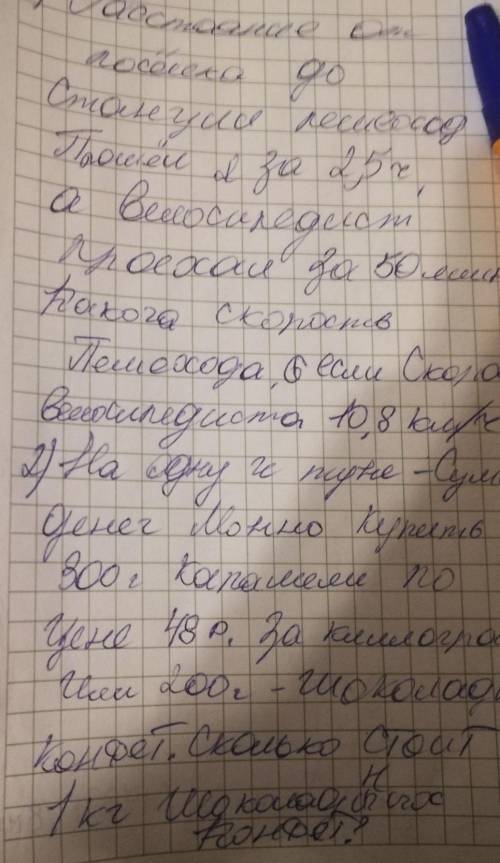 Расстояние от
посёлка до
Станции пешеход
Прошёл за 2,5ч,
а велосипедист
проехал за 50 мин
Какога скорость
Пешехода, если Скоро
велосипедиста 10,8 км/ч
2) На одну и туже - Сум
денег Можно Купить
300г Карамели по
цене 48 р. За киллогра
Или 200г - Шоколад
Конфет. Сколько Стоит
1кг Шоколадных
Конфет?